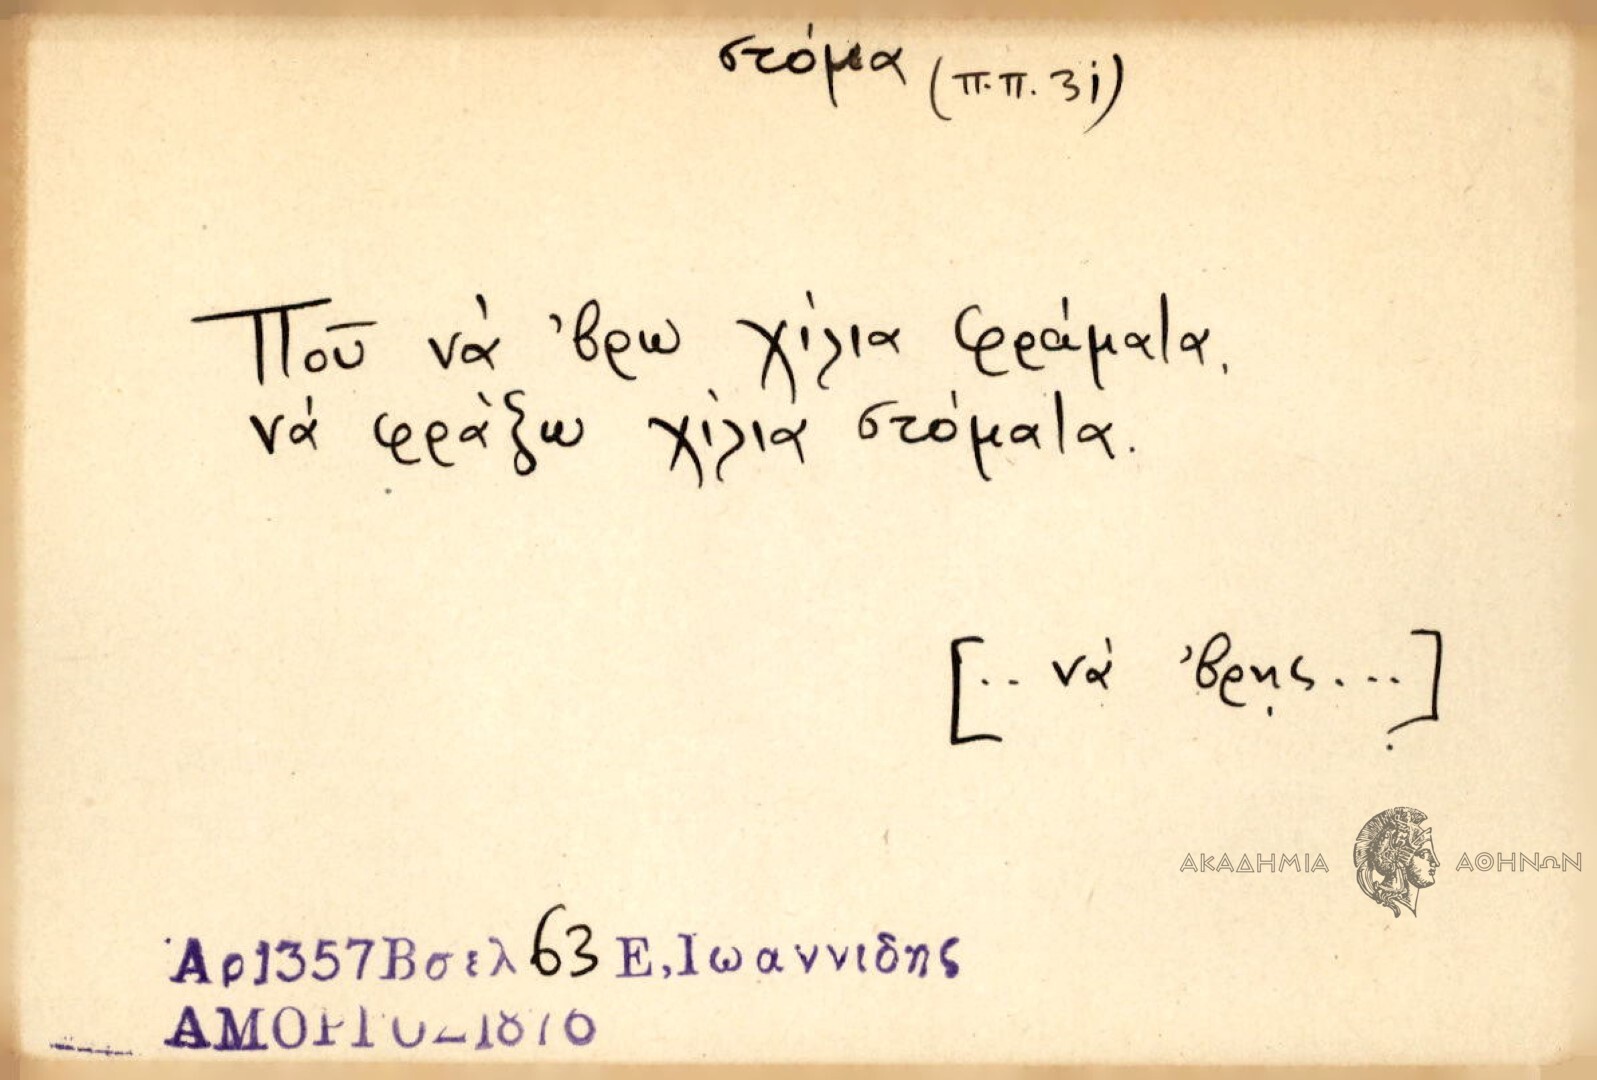 στόμα (π.π. 3i)
Ποῦ νὰ 'βρω χίλια φράματα,
νά φράξω χίλια στόματα.
[.. νὰ 'βρῃς....]
ΑΚΑΔΗΜΙΑ ΑΘΗΝΩΝ
Ἀρ1357Βσελ 63 Ε,Ιωαννιδης
ΑΜΟΡΓΟΣ 1876